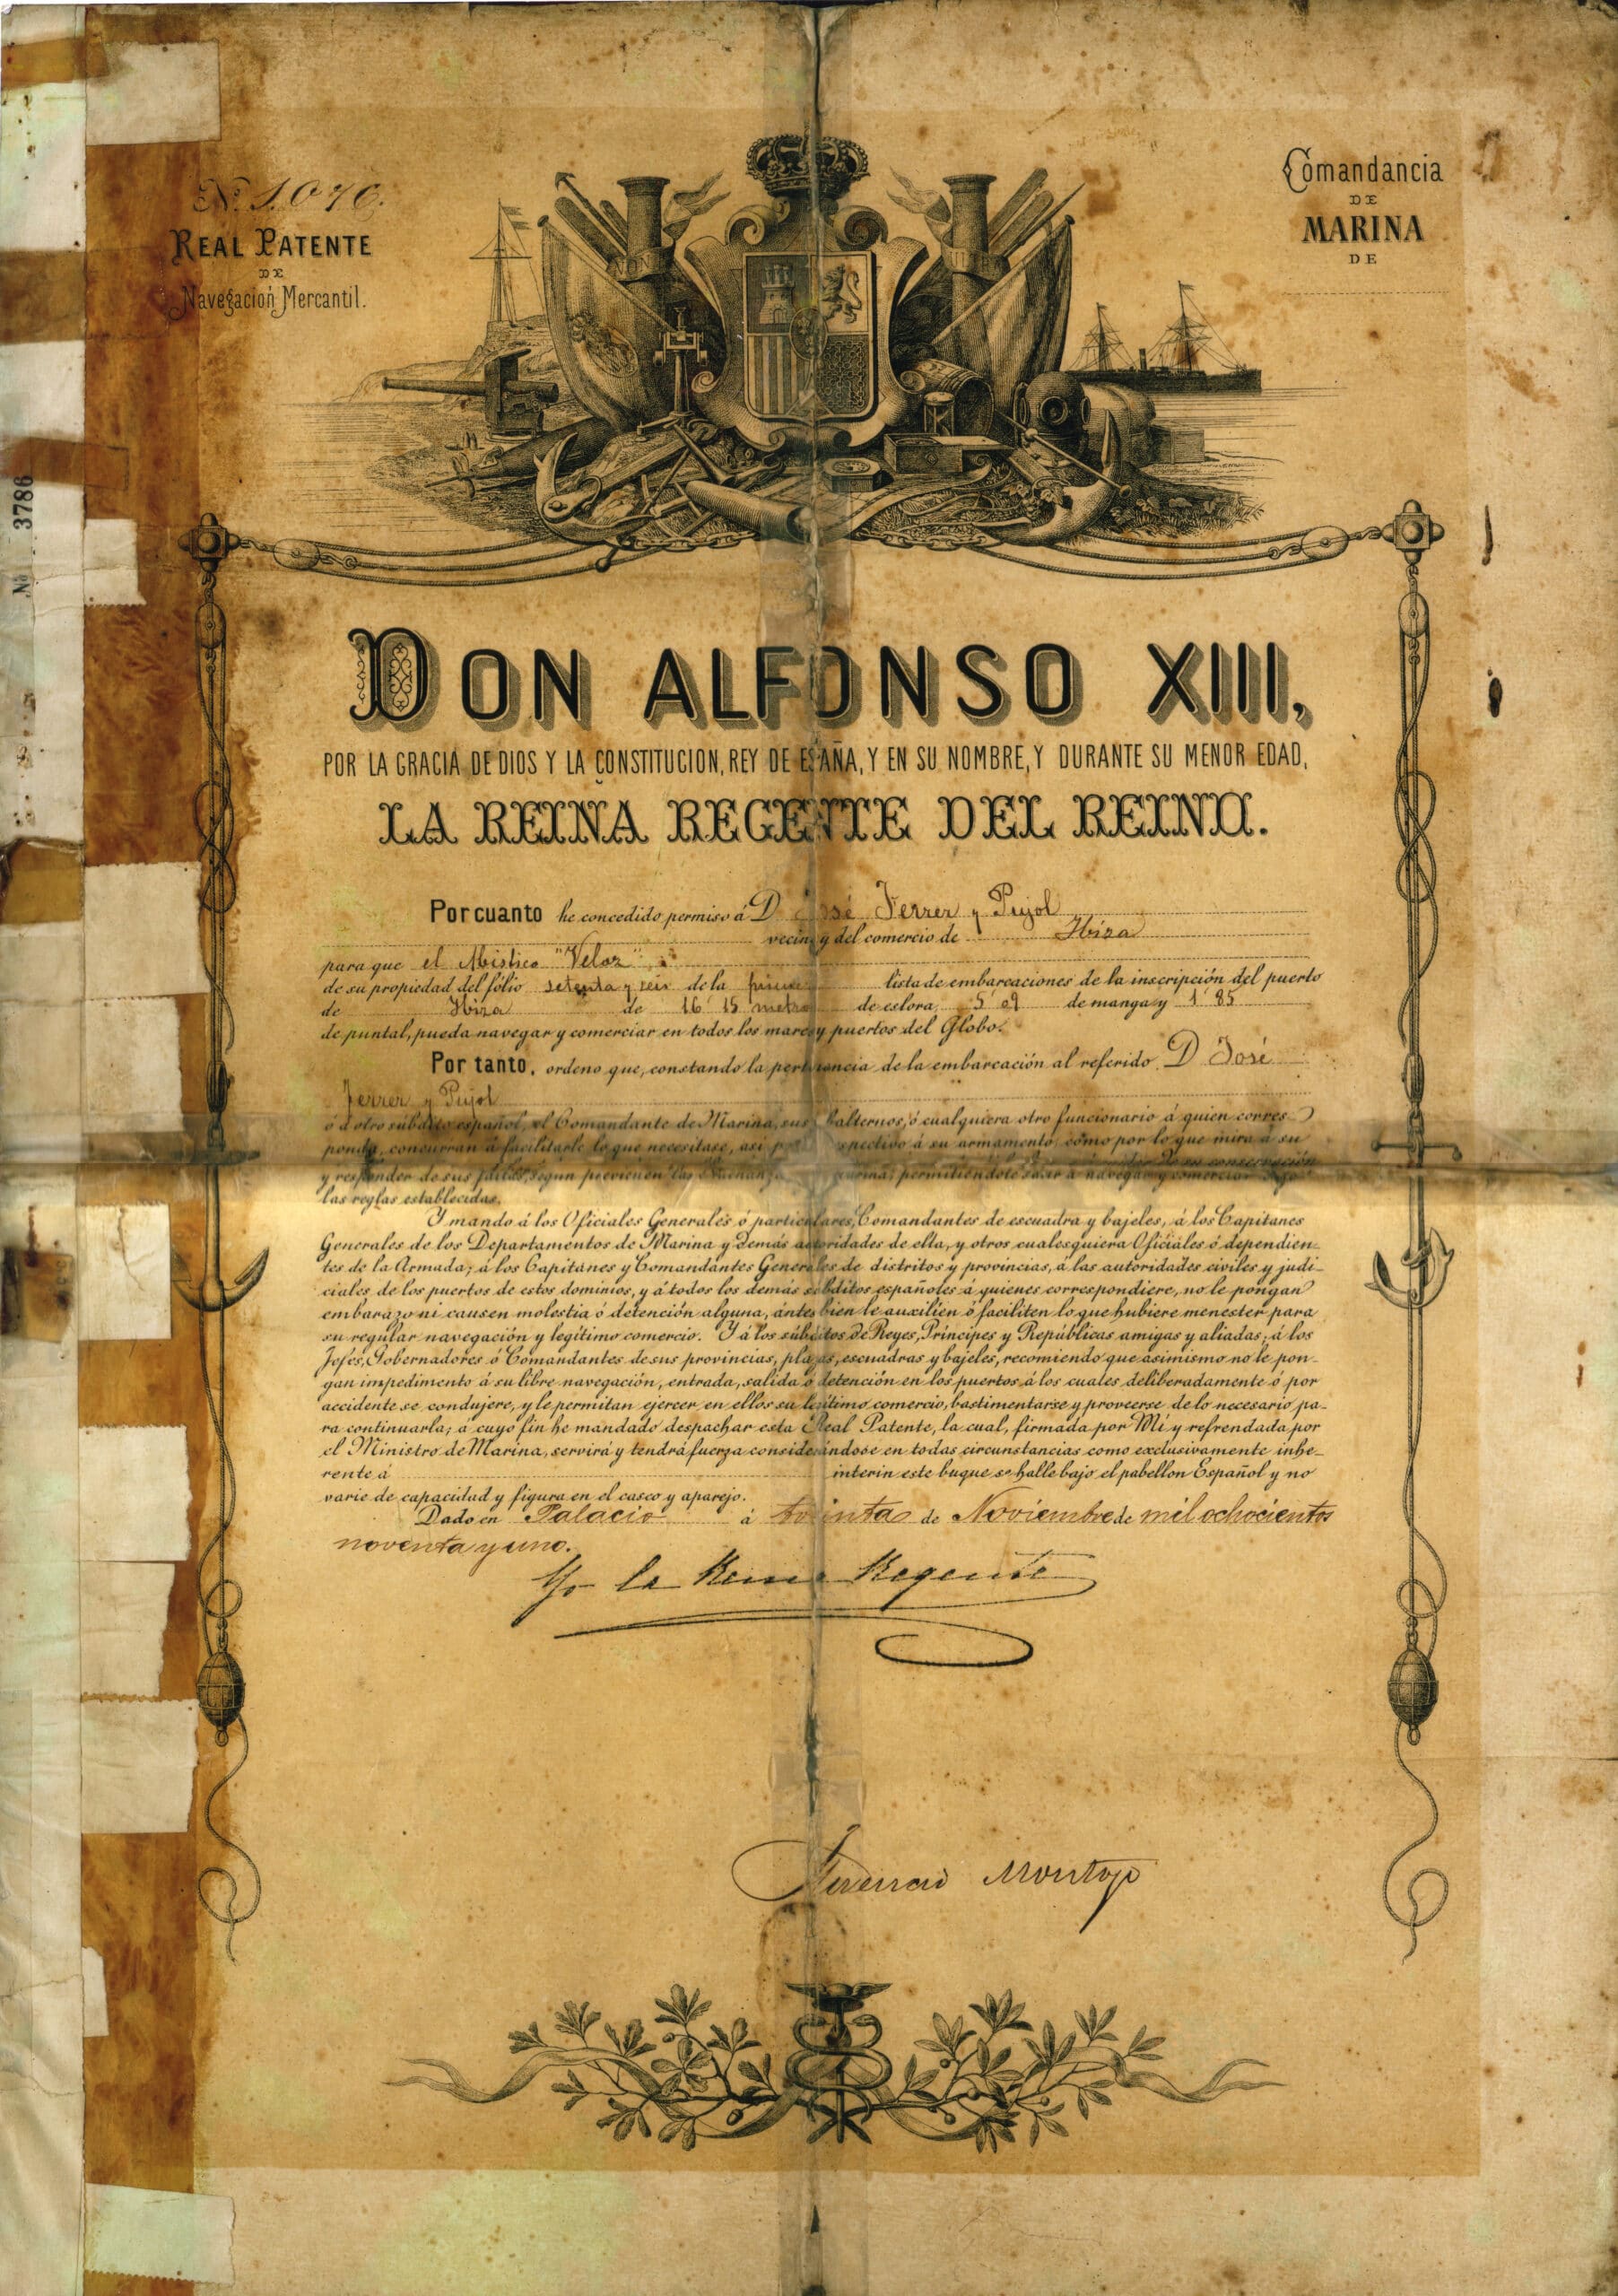 Nº 1.076.
REAL PATENTE
DE
Navegación Mercantil.
Comandancia
DE
MARINA
DE
Nº 3786
DON ALFONSO XIII,
POR LA GRACIA DE DIOS Y LA CONSTITUCION, REY DE ESPAÑA, Y EN SU NOMBRE, Y DURANTE SU MENOR EDAD,
LA REINA REGENTE DEL REINO.
Por cuanto he concedido permiso á D José Ferrer y Pujol
vecino y del comercio de Ibiza
para que el Mistico "Veloz"
de su propiedad del fólio setenta y seis de la primera lista de embarcaciones de la inscripción del puerto
de Ibiza de 16'15 metros de eslora, 5'09 de manga y 1'85
de puntal, pueda navegar y comerciar en todos los mares y puertos del Globo.
Por tanto, ordeno que, constando la pertenencia de la embarcación al referido D José
Ferrer y Pujol
ó á otro súbdito español, el Comandante de Marina, sus subalternos, ó cualquiera otro funcionario á quien corres
ponda, concurran á facilitarle lo que necesitase, así respectivo á su armamento, como por lo que mira á su
conservación
y responder de sus faltas, segun previenen las permitiéndole salir á navegar y comerciar bajo
las reglas establecidas.
Y mando á los Oficiales Generales ó particulares, Comandantes de escuadra y bajeles, á los Capitanes
Generales de los Departamentos de Marina y demás autoridades de ella, y otros cualesquiera Oficiales ó dependien-
tes de la Armada; á los Capitanes y Comandantes Generales de distritos y provincias, á las autoridades civiles y judi-
ciales de los puertos de estos dominios, y á todos los demás súbditos españoles á quienes correspondiere, no le pongan
embarazo ni causen molestia ó detención alguna, ántes bien le auxilien ó faciliten lo que hubiere menester para
su regular navegación y legítimo comercio. Y á los súbditos de Reyes, Príncipes y Repúblicas amigas y aliadas; á los
Jefes, Gobernadores ó Comandantes de sus provincias, plazas, escuadras y bajeles, recomiendo que asimismo no le pon-
gan impedimento á su libre navegación, entrada, salida ó detención en los puertos á los cuales deliberadamente ó por
accidente se condujere, y le permitan ejercer en ellos su legítimo comercio, bastimentarse y proveerse de lo necesario pa-
ra continuarla; á cuyo fin he mandado despachar esta Real Patente, la cual, firmada por Mí y refrendada por
el Ministro de Marina, servirá y tendrá fuerza considerándose en todas circunstancias como exclusivamente inhe-
rente á interin este buque se halle bajo el pabellon Español y no
varie de capacidad y figura en el casco y aparejo.
Dado en Palacio á treinta de Noviembre de mil ochocientos
noventa y uno.
Yo la Reina Regente
Florencio Montojo